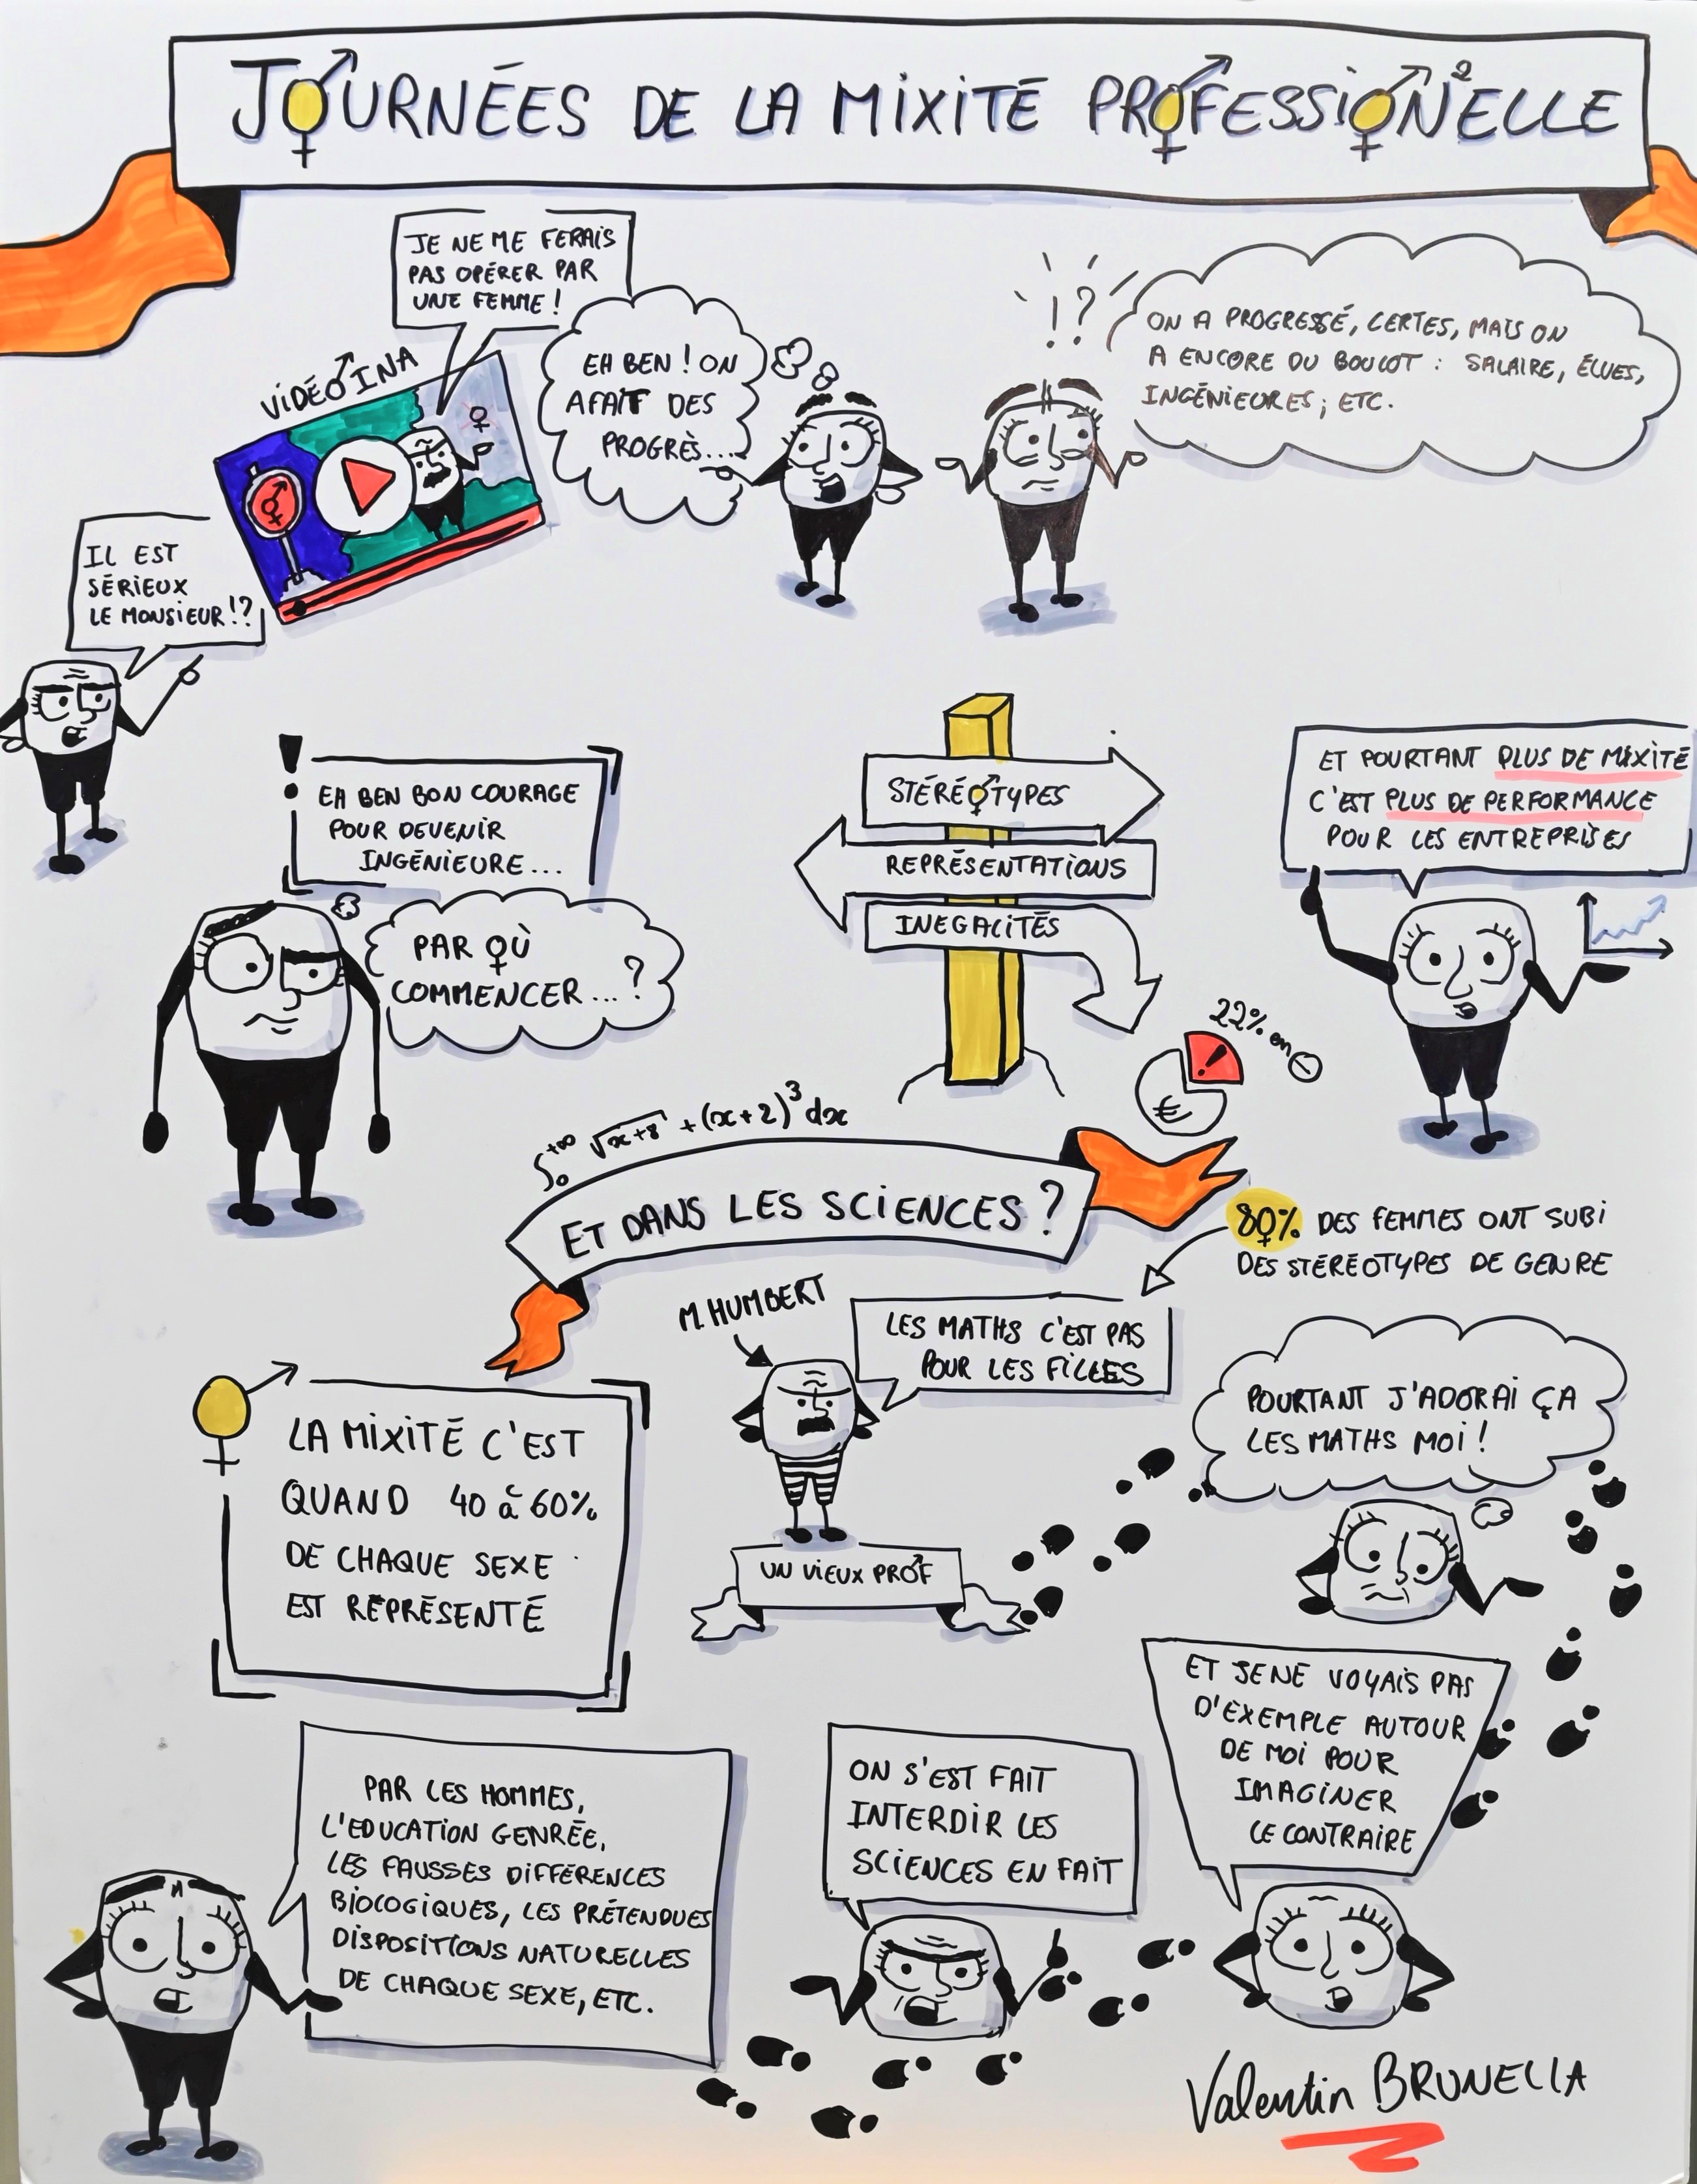 JOURNÉES DE LA MIXITÉ PROFESSION²ELLE
JE NE ME FERAIS
PAS OPÉRER PAR
UNE FEMME !
VIDÉO INA
EH BEN ! ON
A FAIT DES
PROGRÈS...
! ?
ON A PROGRESSÉ, CERTES, MAIS ON
A ENCORE DU BOULOT : SALAIRE, ÉLUES,
INGÉNIEURES, ETC.
IL EST
SÉRIEUX
LE MONSIEUR !?
! EH BEN BON COURAGE
POUR DEVENIR
INGÉNIEURE...
PAR OÙ
COMMENCER... ?
STÉRÉOTYPES
REPRÉSENTATIONS
INEGALITÉS
ET POURTANT PLUS DE MIXITÉ
C'EST PLUS DE PERFORMANCE
POUR LES ENTREPRISES
22% en -
!
€
∫₀⁺∞ √x+8 + (x+2)³ dx
ET DANS LES SCIENCES ?
80% DES FEMMES ONT SUBI
DES STÉRÉOTYPES DE GENRE
M. HUMBERT
LES MATHS C'EST PAS
POUR LES FILLES
UN VIEUX PROF
POURTANT J'ADORAI ÇA
LES MATHS MOI !
LA MIXITÉ C'EST
QUAND 40 à 60%
DE CHAQUE SEXE
EST REPRÉSENTÉ
ET JE NE VOYAIS PAS
D'EXEMPLE AUTOUR
DE MOI POUR
IMAGINER
LE CONTRAIRE
ON S'EST FAIT
INTERDIR LES
SCIENCES EN FAIT
PAR LES HOMMES,
L'EDUCATION GENRÉE,
LES FAUSSES DIFFÉRENCES
BIOLOGIQUES, LES PRÉTENDUES
DISPOSITIONS NATURELLES
DE CHAQUE SEXE, ETC.
Valentin BRUNELLA